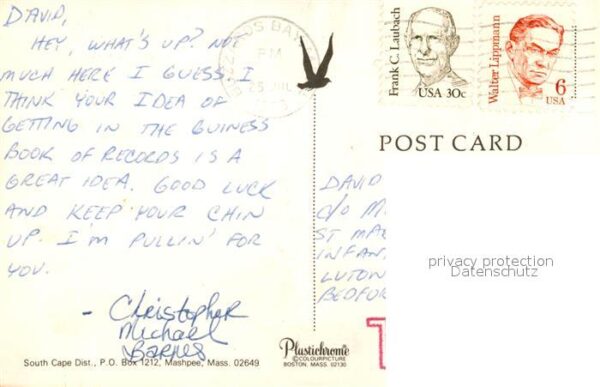 DAVID,
HEY, WHAT'S UP? NOT
MUCH HERE I GUESS. I
THINK YOUR IDEA OF
GETTING IN THE GUINESS
BOOK OF RECORDS IS A
GREAT IDEA. GOOD LUCK
AND KEEP YOUR CHIN
UP. I'M PULLIN' FOR
YOU.
- Christopher
Michael
Barnes
South Cape Dist., P.O. Box 1212, Mashpee, Mass. 02649
BUZZARDS BAY
PM
25 JUL
Frank C. Laubach
USA 30c
Walter Lippmann
6
USA
POST CARD
DAVID
c/o M
ST MA
INFAN
LUTON
BEDFOR
privacy protection
Datenschutz
Plastichrome
COLOURPICTURE
BOSTON, MASS. 02130